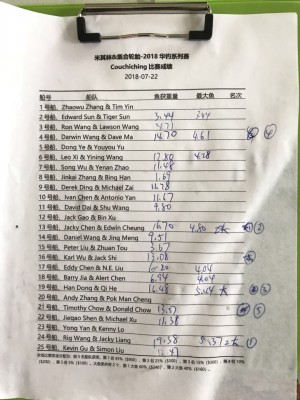 米其林&集合轮胎-2018 华钓系列赛
Couchiching 比赛成绩
2018-07-22
船号 船队 鱼获重量 最大鱼 名次
1 号船、 Zhaowu Zhang & Tim Yin
2 号船、 Edward Sun & Tiger Sun 3.44 3.44
3 号船、 Ron Wang & Lawson Wang 4.71
4 号船、 Darwin Wang & Dave Ma 14.70 4.61 ④
5 号船、 Dong Ye & Youyou Yu
6 号船、 Leo Xi & Yining Wang 12.80 4.28
7 号船、 Song Wu & Yenan Zhao 11.48
8 号船、 Jinkai Zhang & Bing Han 1.67
9 号船、 Derek Ding & Michael Zai 11.78
10 号船、 Ivan Chen & Antonio Yan 11.67
11 号船、 David Dai & Shu Wang 9.80
12 号船、 Jack Gao & Bin Xu
13 号船、 Jacky Chen & Edwin Cheung 16.70 4.80 ②
14 号船、 Daniel Wang & Jing Meng 9.51
15 号船、 Peter Liu & Zhuan Tou 3.67
16 号船、 Karl Wu & Jack Shi 13.08
17 号船、 Eddy Chen & N.E. Liu 4.04
18 号船、 Barry Jia & Alert Chen 6.94 4.04
19 号船、 Han Dong & Qi He 16.48 5.44 大 ③
20 号船、 Andy Zhang & Pok Man Cheng
21 号船、 Timothy Chow & Donald Chow 13.57 ⑤
22 号船、 Jiaqao Shen & Michael Xu 11.38
23 号船、 Yong Yan & Kenny Lo
24 号船、 Rig Wang & Jacky Liang 19.38 大 ①
25 号船、 Kevin Gu & Simon Liu